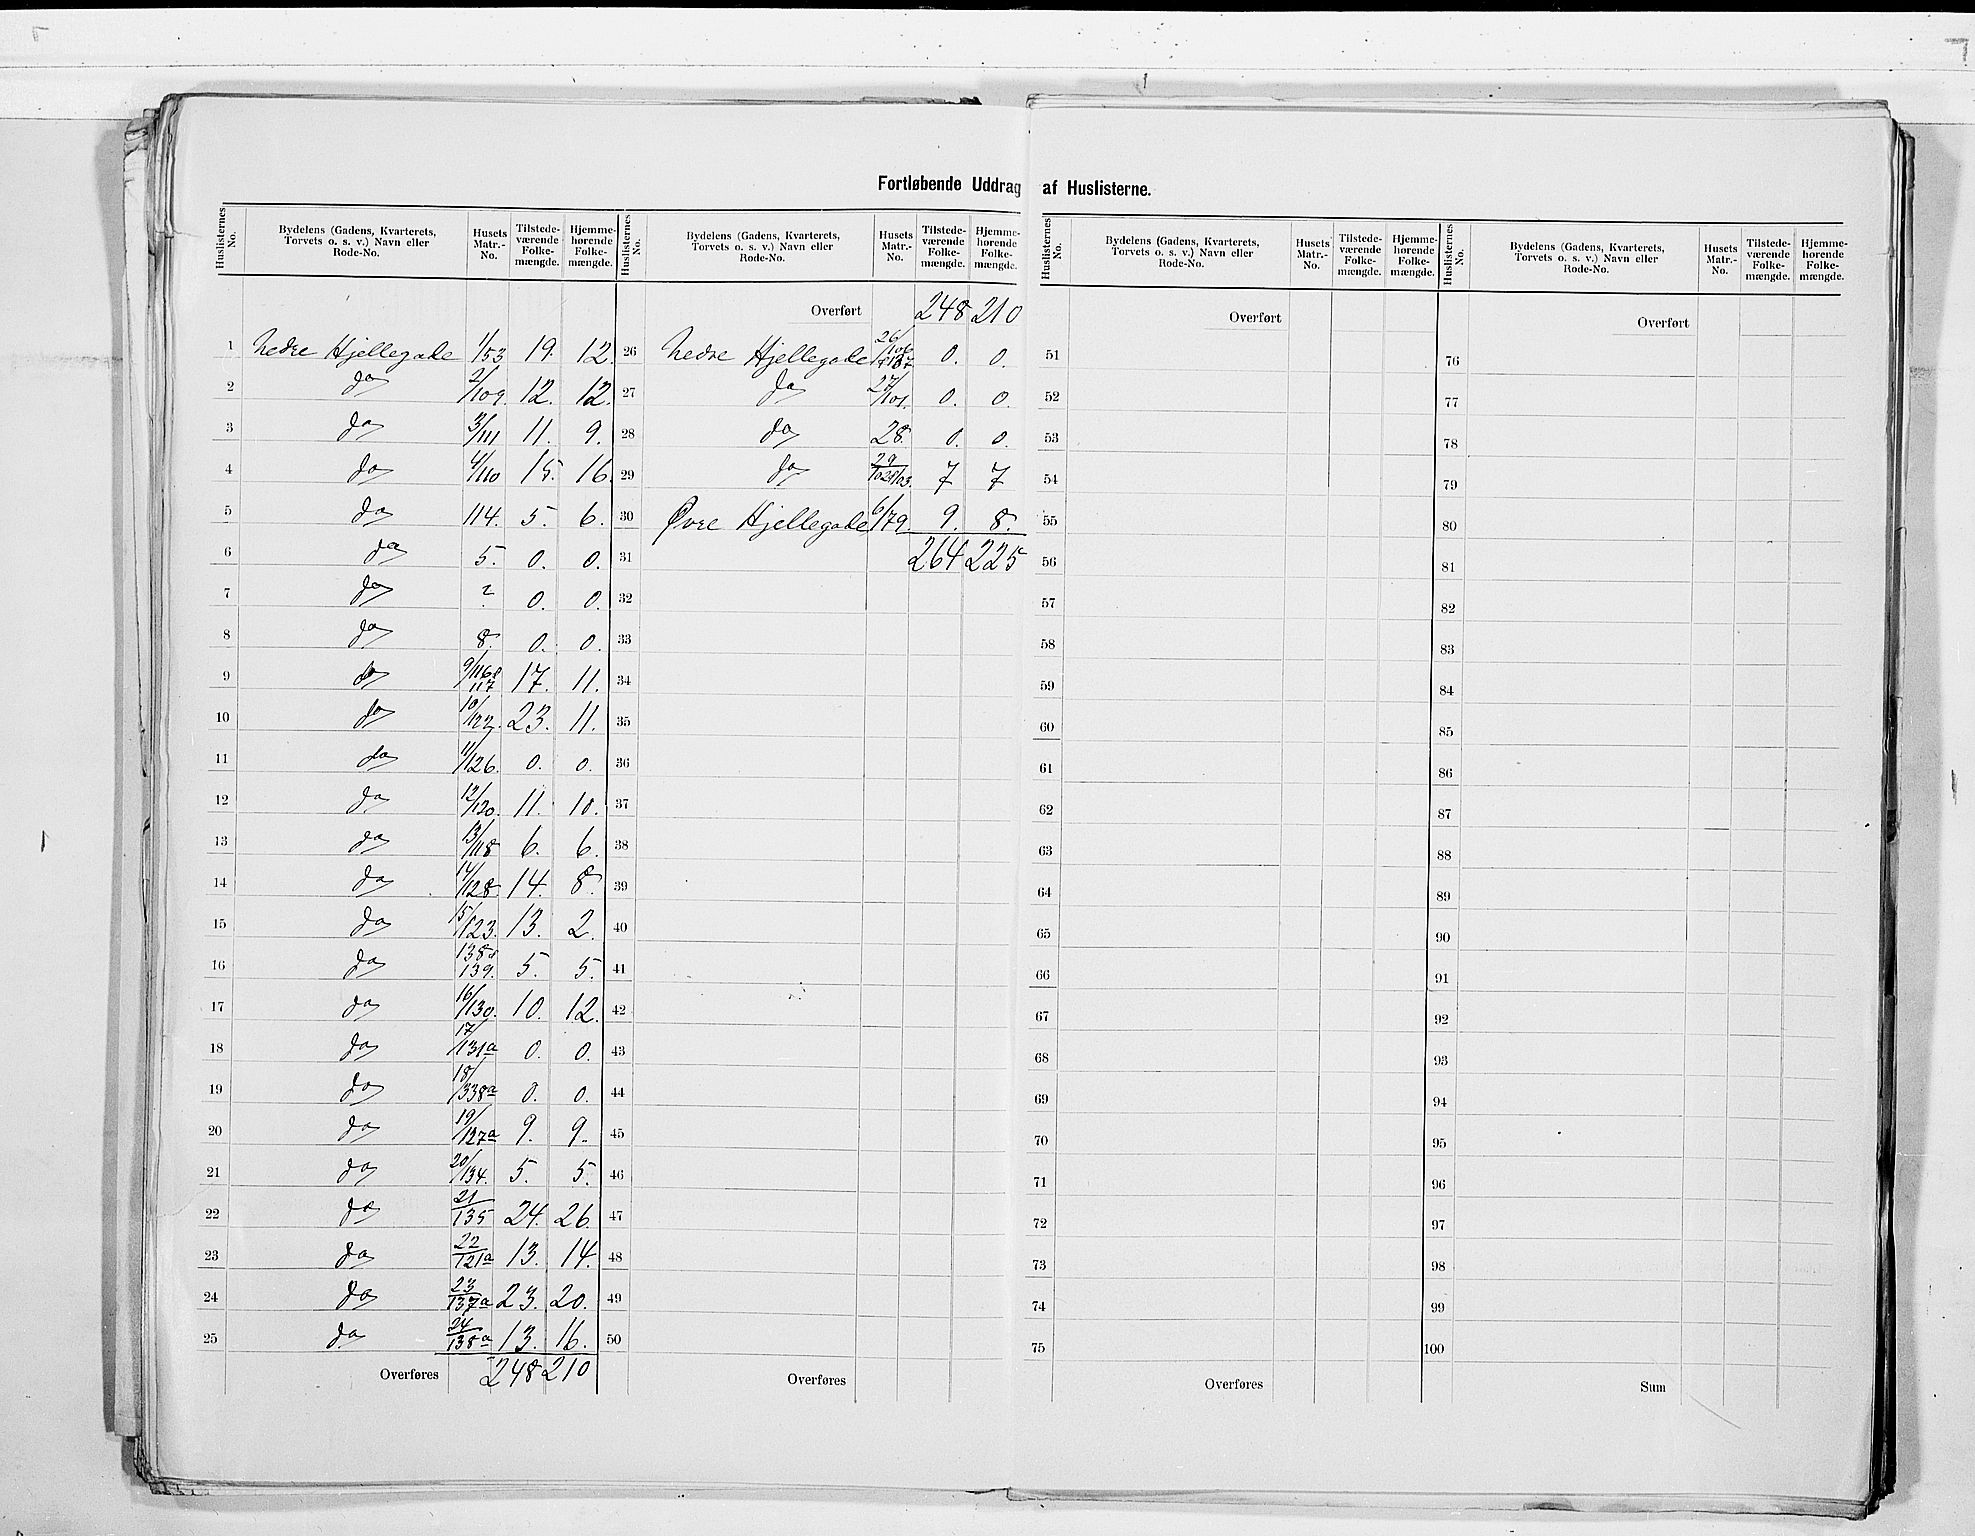 Fortløbende Uddrag af Huslisterne.
Huslisternes No. Bydelens (Gadens, Kvarterets, Torvets o. s. v.) Navn eller Rode-No. Husets Matr.-No. Tilstedeværende Folkemængde. Hjemmehørende Folkemængde.
1 Nedre Hjellegade 1/53 19. 12.
2 do 2/109. 12. 12.
3 do 3/111 11. 9.
4 do 4/110 15. 16.
5 do 114. 5. 6.
6 do 5. 0. 0.
7 do ? 0. 0.
8 do 8. 0. 0.
9 do 9/116 & 117 17. 11.
10 do 10/122. 23. 11.
11 do 11/126. 0. 0.
12 do 12/120. 11. 10.
13 do 13/118 6. 6.
14 do 14/128. 14. 8.
15 do 15/123. 13. 2.
16 do 138 & 139. 5. 5.
17 do 16/130. 10. 12.
18 do 17/131a 0. 0.
19 do 18/338a 0. 0.
20 do 19/127a 9. 9.
21 do 20/134. 5. 5.
22 do 21/135 24. 26.
23 do 22/121a 13. 14.
24 do 23/137a 23. 20.
25 do 24/138a 13. 16.
Overføres 248 210
Huslisternes No. Bydelens (Gadens, Kvarterets, Torvets o. s. v.) Navn eller Rode-No. Husets Matr.-No. Tilstedeværende Folkemængde. Hjemmehørende Folkemængde.
Overført 248 210
26 Nedre Hjellegade 26/106 0. 0.
27 do 27/101. 0. 0.
28 do 28. 0. 0.
29 do 29/102 & 103. 7 7
30 Øvre Hjellegade 6/179. 9. 8.
31 264 225
32
33
34
35
36
37
38
39
40
41
42
43
44
45
46
47
48
49
50
Overføres
Huslisternes No. Bydelens (Gadens, Kvarterets, Torvets o. s. v.) Navn eller Rode-No. Husets Matr.-No. Tilstedeværende Folkemængde. Hjemmehørende Folkemængde.
Overført
51
52
53
54
55
56
57
58
59
60
61
62
63
64
65
66
67
68
69
70
71
72
73
74
75
Overføres
Huslisternes No. Bydelens (Gadens, Kvarterets, Torvets o. s. v.) Navn eller Rode-No. Husets Matr.-No. Tilstedeværende Folkemængde. Hjemmehørende Folkemængde.
Overført
76
77
78
79
80
81
82
83
84
85
86
87
88
89
90
91
92
93
94
95
96
97
98
99
100
Sum